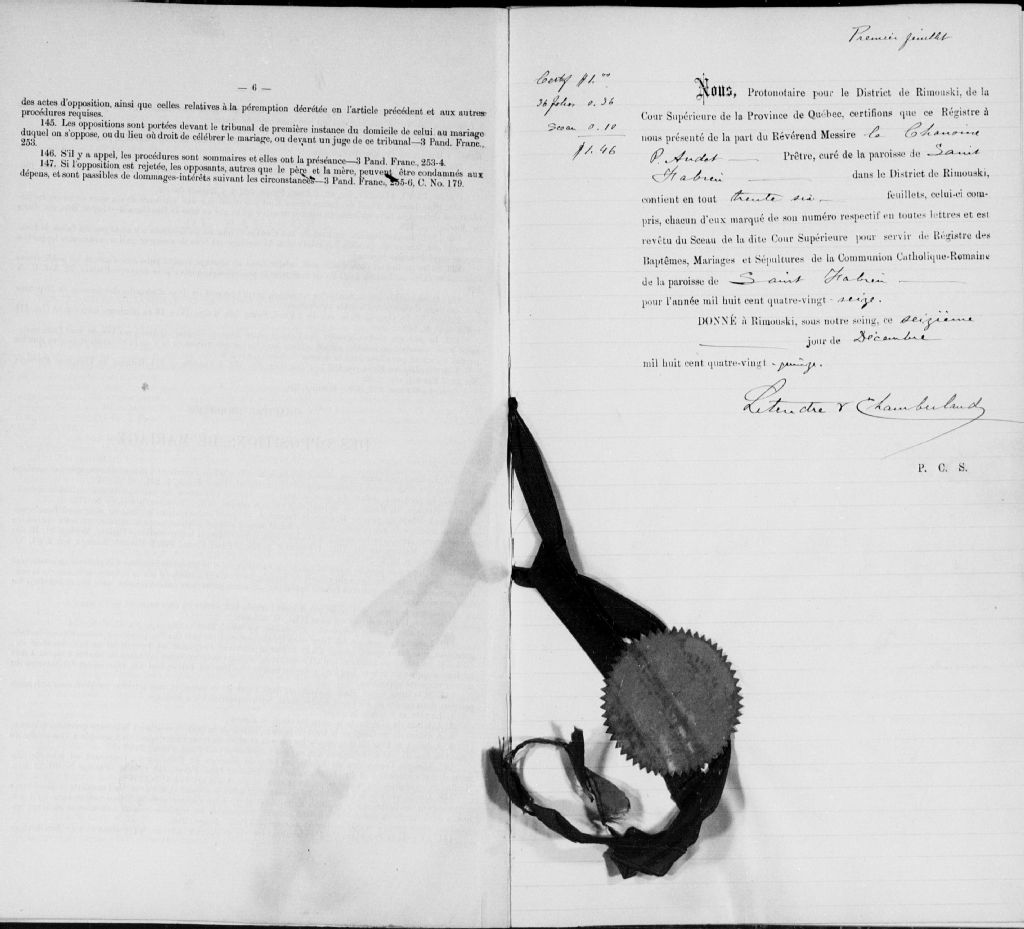 — 6 —
des actes d'opposition, ainsi que celles relatives à la péremption décrétée en l'article précédent et aux autres
procédures requises.
145. Les oppositions sont portées devant le tribunal de première instance du domicile de celui au mariage
duquel on s'oppose, ou du lieu où droit de célébrer le mariage, ou devant un juge de ce tribunal—3 Pand. Franc.,
253.
146. S'il y a appel, les procédures sont sommaires et elles ont la préséance—3 Pand. Franc., 253-4.
147. Si l'opposition est rejetée, les opposants, autres que le père et la mère, peuvent être condamnés aux
dépens, et sont passibles de dommages-intérêts suivant les circonstances—3 Pand. Franc., 255-6, C. No. 179.
Premier feuillet
Certif $1.00
36 folios 0.36
Sceau 0.10
$1.46
Nous, Protonotaire pour le District de Rimouski, de la
Cour Supérieure de la Province de Québec, certifions que ce Régistre à
nous présenté de la part du Révérend Messire le Chanoine
P. Audet — Prêtre, curé de la paroisse de Saint
Fabien — dans le District de Rimouski,
contient en tout trente six — feuillets, celui-ci com-
pris, chacun d'eux marqué de son numéro respectif en toutes lettres et est
revêtu du Sceau de la dite Cour Supérieure pour servir de Régistre des
Baptêmes, Mariages et Sépultures de la Communion Catholique-Romaine
de la paroisse de Saint Fabien —
pour l'année mil huit cent quatre-vingt-seize.
DONNÉ à Rimouski, sous notre seing, ce seizième
— jour de Décembre
mil huit cent quatre-vingt-quinze.
Letendre & Chamberland
P. C. S.